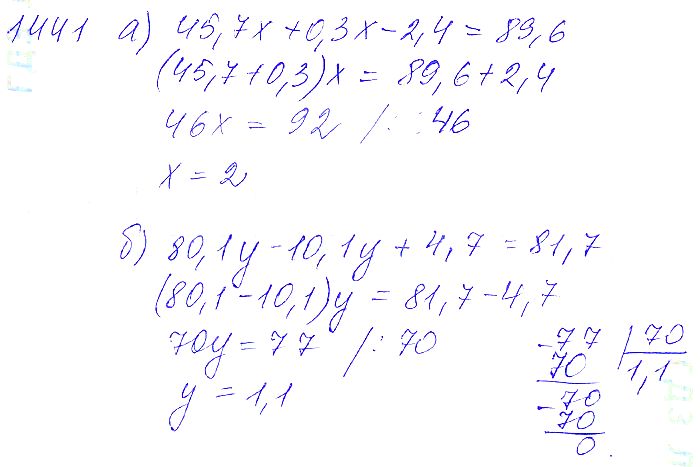 1441 а) 45,7x + 0,3x - 2,4 = 89,6
(45,7 + 0,3)x = 89,6 + 2,4
46x = 92 /: 46
x = 2
б) 80,1y - 10,1y + 4,7 = 81,7
(80,1 - 10,1)y = 81,7 - 4,7
70y = 77 /: 70
y = 1,1
- 77 | 70
70 | 1,1
- 70
70
0